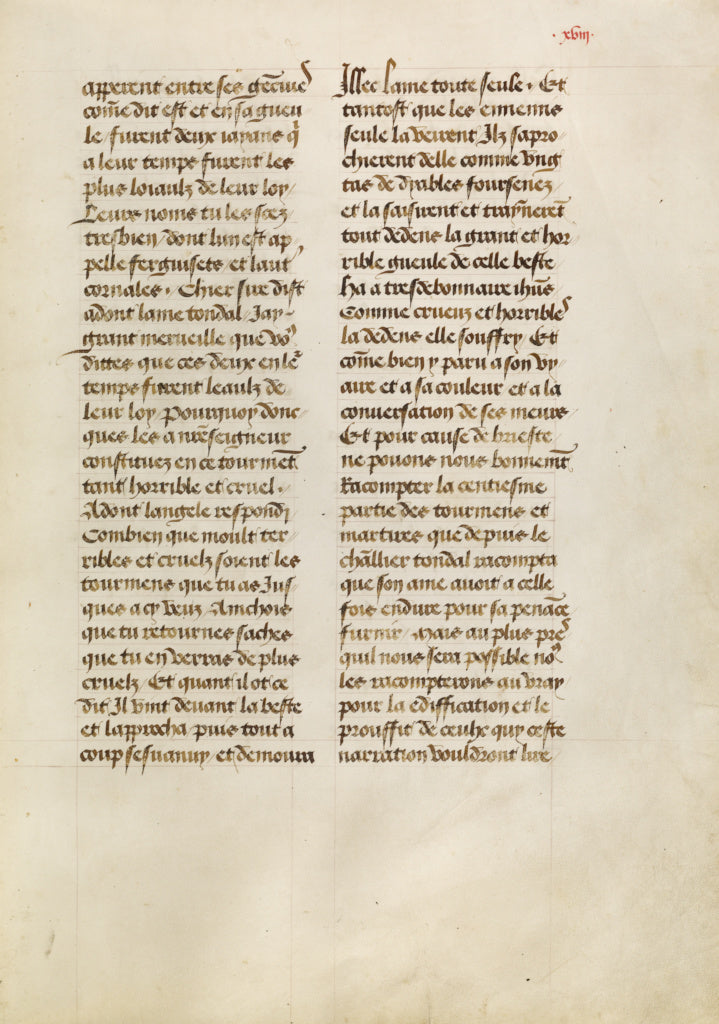 .xviij.
apperent entre ses gēciues
cōme dit est et en sa gueu
le furent deux iayans q̄
a leur temps furent les
plus loiaulz de leur loy /
Leurs noms tu les scez
tresbien / dont lun est ap /
pelle ferguisets et laut'
cornales. Chier sire dist
adont lame tondal / Jay /
grant merueille que vo9
dittes que ces deux en lē
temps furent leaulz de
leur loy Pourquoy donc /
ques les a nr̄eseigneur
constituez en ce tourmēt
tant horrible et cruel.
Adont langele respondi
Combien que moult ter /
ribles et cruelz soient les
tourmens que tu as Jus /
ques a cy veuz / Ainchois
que tu retournes saches
que tu en verras de plus
cruelz / Et quant il ot ce
dit / Il vint deuant la beste
et lapprocha puis tout a
coup sesuanuy / et demoura
Illec lame toute seule. Et
tantost que les ennemis
seule la veirent / Ilz sapro /
chierent delle comme vng
tas de dyables foursenez /
et la saisirent et traynerēt
tout dedens la grant et hor /
rible gueule de celle beste
ha a tresdebonnaire ihūs
Comme crueux et horribles
la dedens elle souffry / Et
cōme bien y paru a son vy /
aire et a sa couleur et a la
conuersation de ses meurs
Et pour cause de briefte
ne pouons nous bonnemēt
Racompter la centiesme
partie des tourmens et
martires que depuis le
chāllier tondal racompta
que son ame auoit a celle
fois endure pour sa penāce
furnir / Mais au plus pres
quil nous sera possible no9
les racompterons au vray
pour la ediffication et le
prouffit de ceulx quy ceste
narration vouldront lire